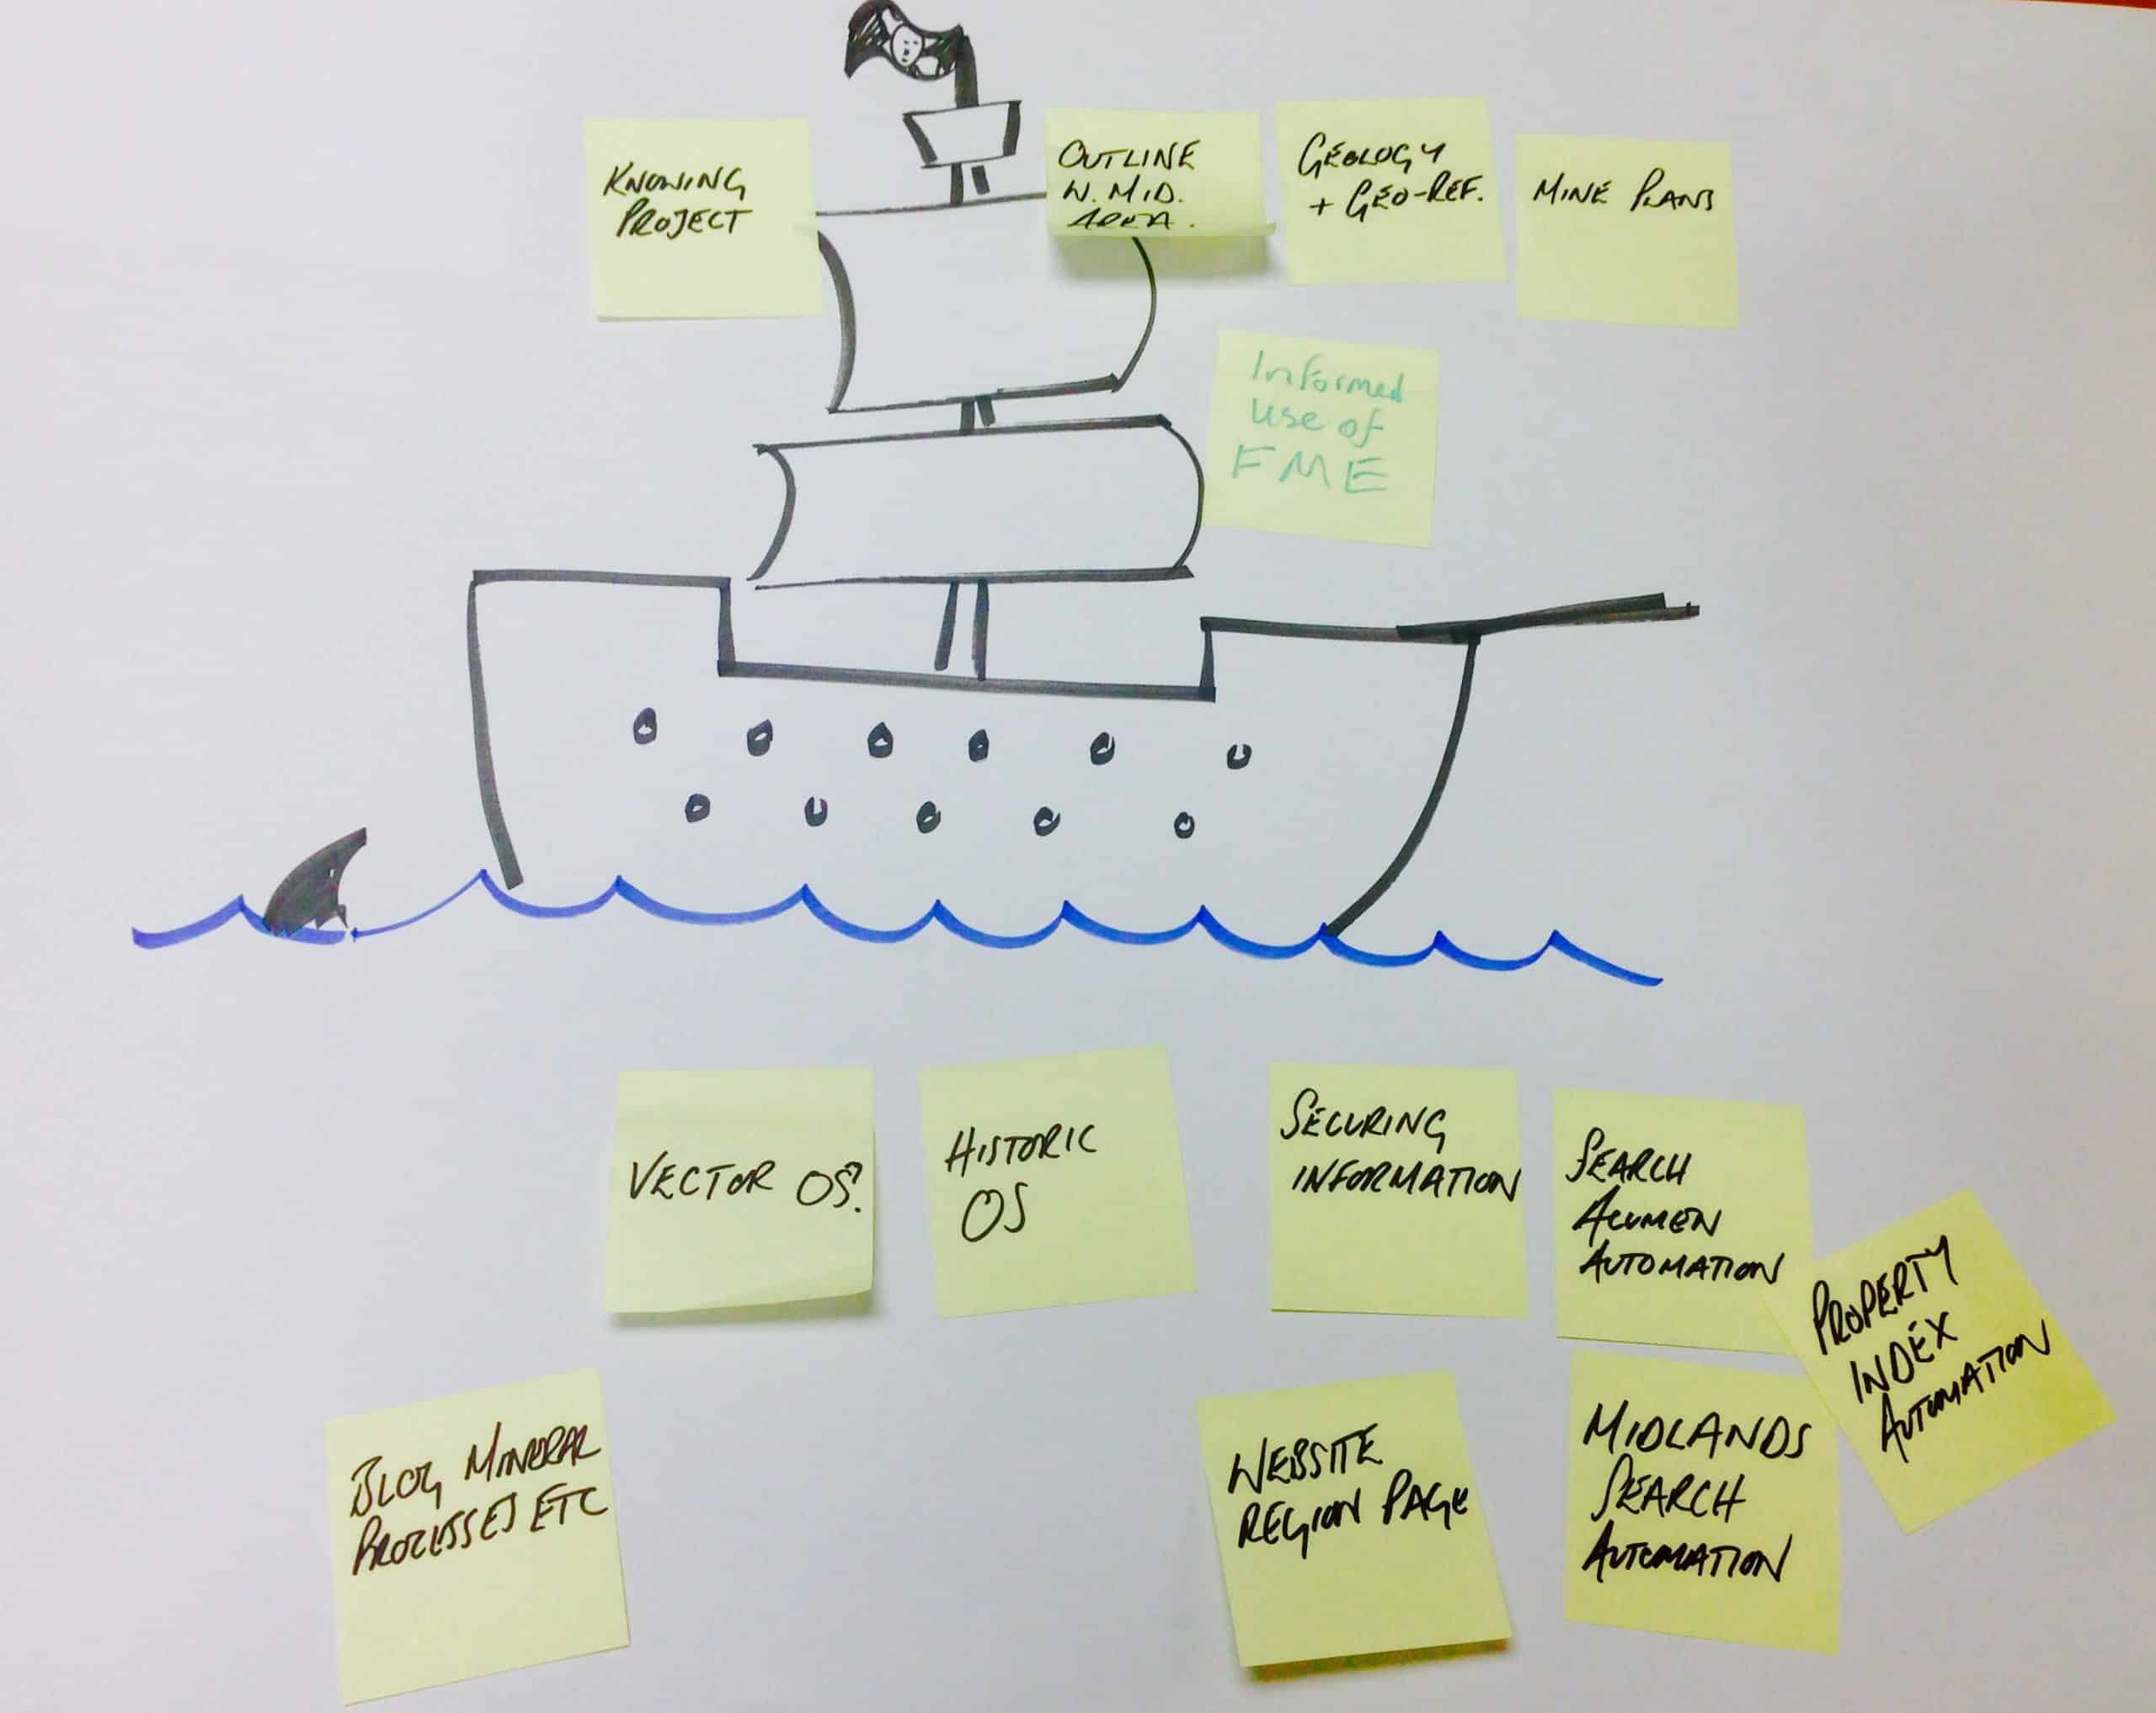 KNOWING
PROJECT
OUTLINE
W. MID.
AREA.
GEOLOGY
+ GEO-REF.
MINE PLANS
Informed
use of
FME
VECTOR OS?
HISTORIC
OS
SECURING
INFORMATION
SEARCH
ACUMEN
AUTOMATION
PROPERTY
INDEX
AUTOMATION
BLOG MINERAL
PROCESSES ETC
WEBSITE
REGION PAGE
MIDLANDS
SEARCH
AUTOMATION